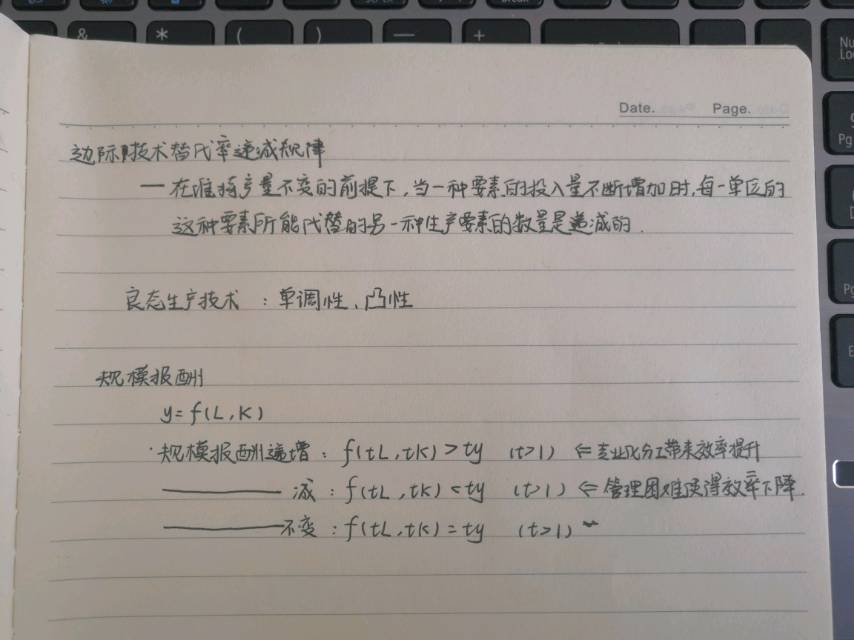 Date. Page.
边际技术替代率递减规律
— 在维持产量不变的前提下,当一种要素的投入量不断增加时,每一单位的
这种要素所能代替的另一种生产要素的数量是递减的.
良态生产技术 : 单调性、凸性
规模报酬
y = f(L, K)
·规模报酬递增 : f(tL, tK) > ty (t>1) ⇐ 专业化分工带来效率提升
———— 减 : f(tL, tK) < ty (t>1) ⇐ 管理困难使得效率下降.
———— 不变 : f(tL, tK) = ty (t>1)
&
*
(
)
—
+
Pg
Pg